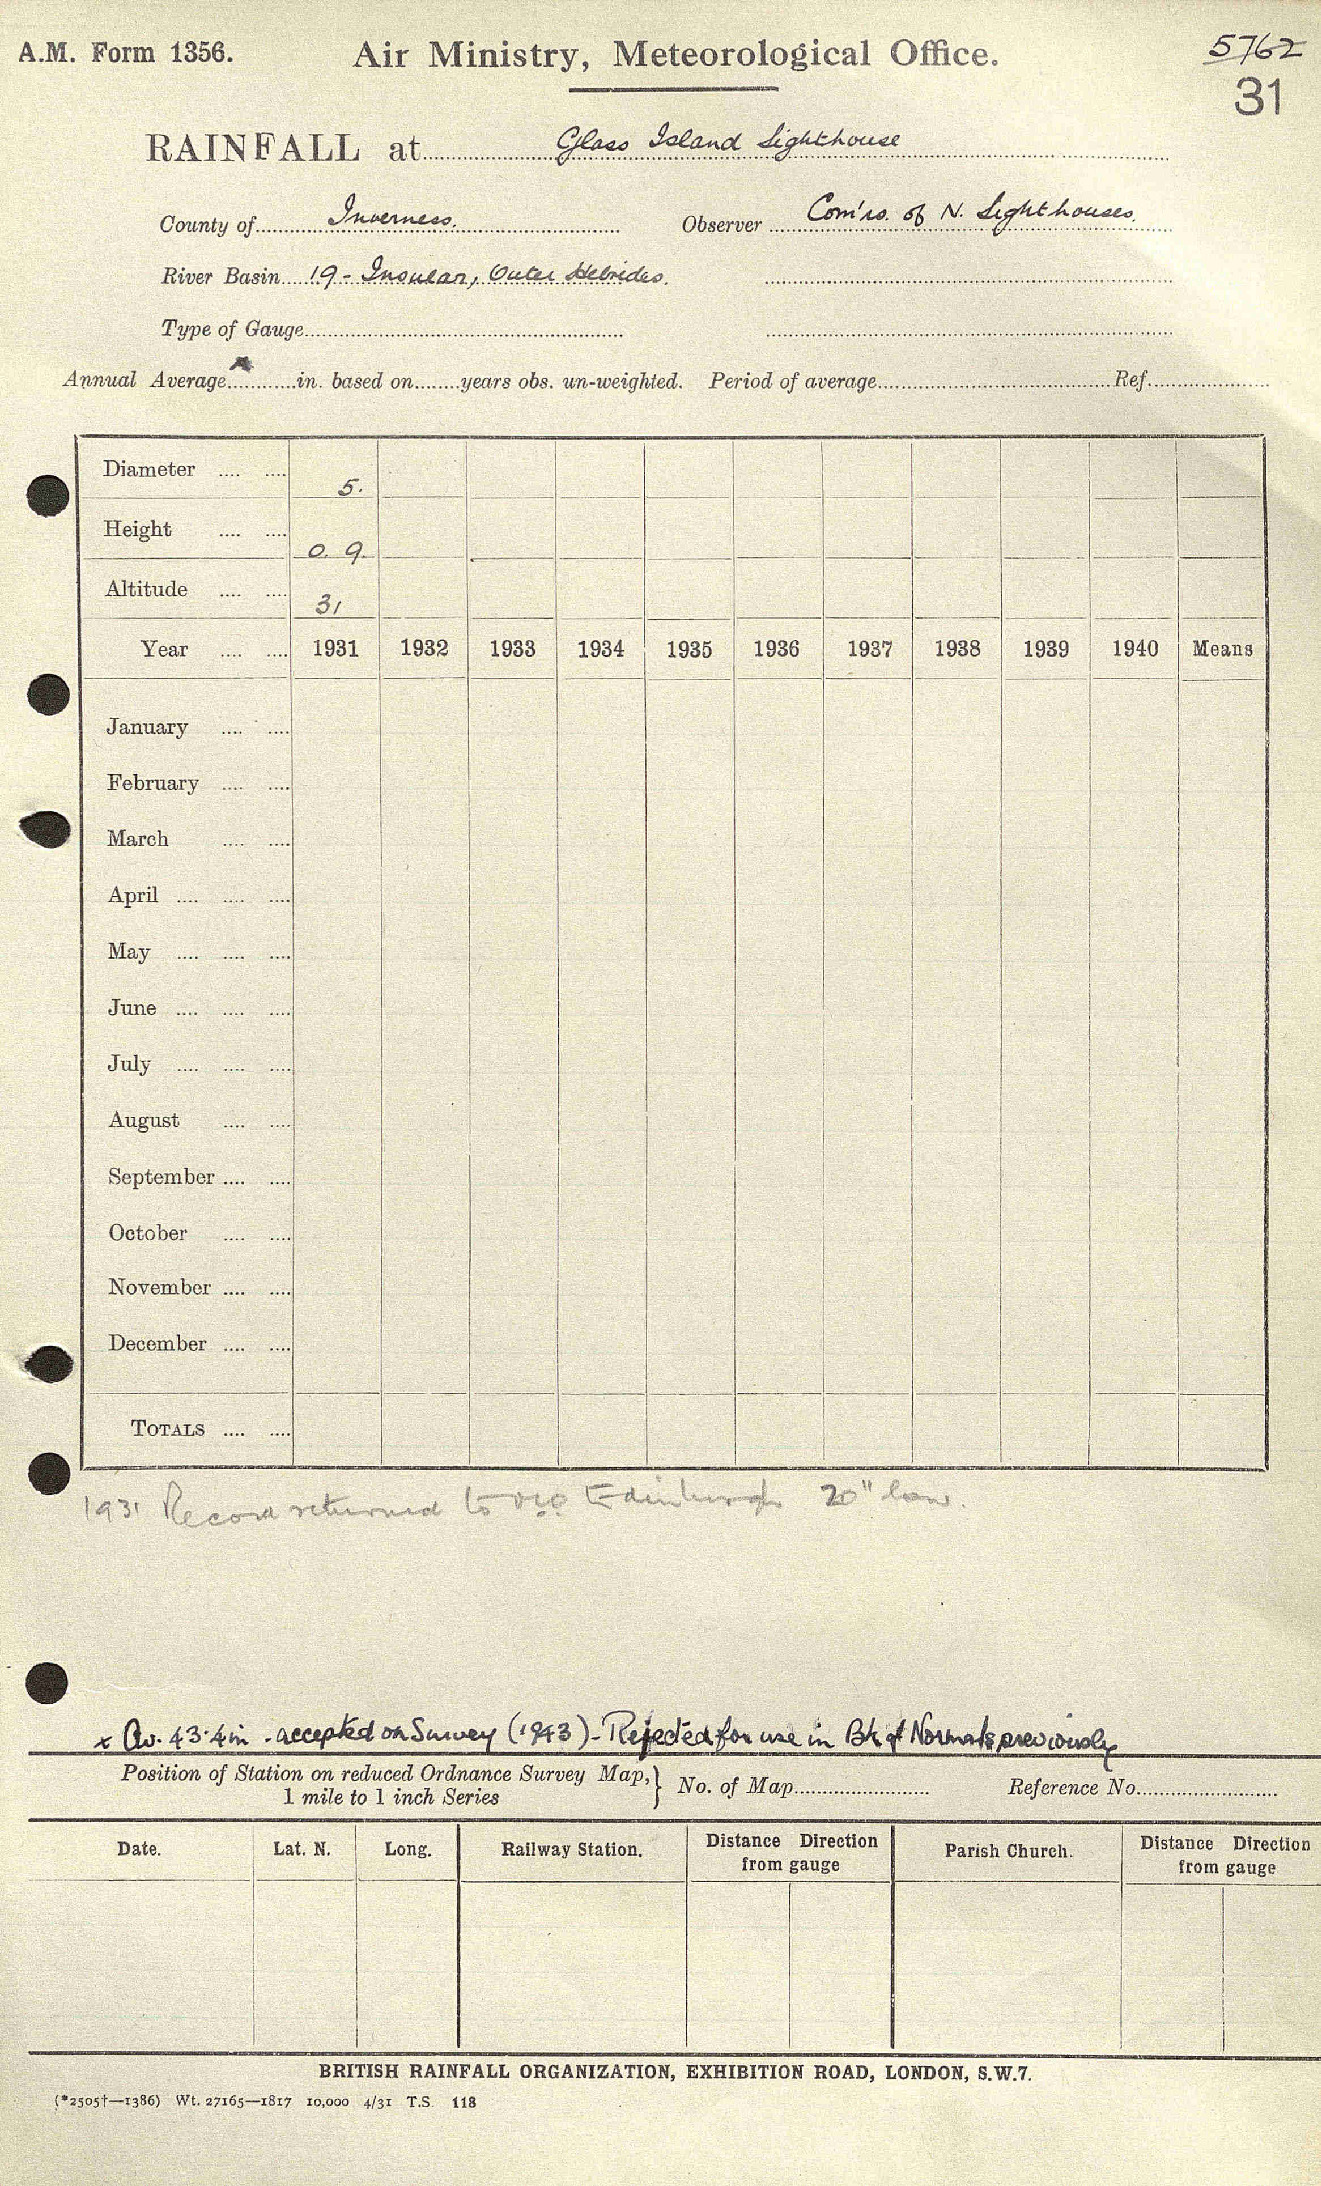 A.M. Form 1356. Air Ministry, Meteorological Office. 5762
31
RAINFALL at Glass Island Lighthouse
County of Inverness. Observer Com'rs. of N. Lighthouses.
River Basin 19 - Insular, Outer Hebrides.
Type of Gauge
Annual Average x in. based on years obs. un-weighted. Period of average Ref.
Diameter 5.
Height 0. 9.
Altitude 31
Year 1931 1932 1933 1934 1935 1936 1937 1938 1939 1940 Means
January
February
March
April
May
June
July
August
September
October
November
December
TOTALS
1931 Record returned to Edinburgh 20" low.
x Av. 43.4in. accepted on Survey (1943) - Rejected for use in Bk of Normals previously
Position of Station on reduced Ordnance Survey Map, } No. of Map Reference No.
1 mile to 1 inch Series
Date. Lat. N. Long. Railway Station. Distance Direction from gauge Parish Church. Distance Direction from gauge
BRITISH RAINFALL ORGANIZATION, EXHIBITION ROAD, LONDON, S.W.7.
(*2505†—1386) Wt. 27165—1817 10,000 4/31 T.S. 118